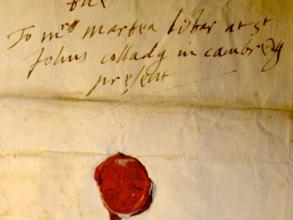 To mrs martea liber at st
Johns collady in cambreg
present